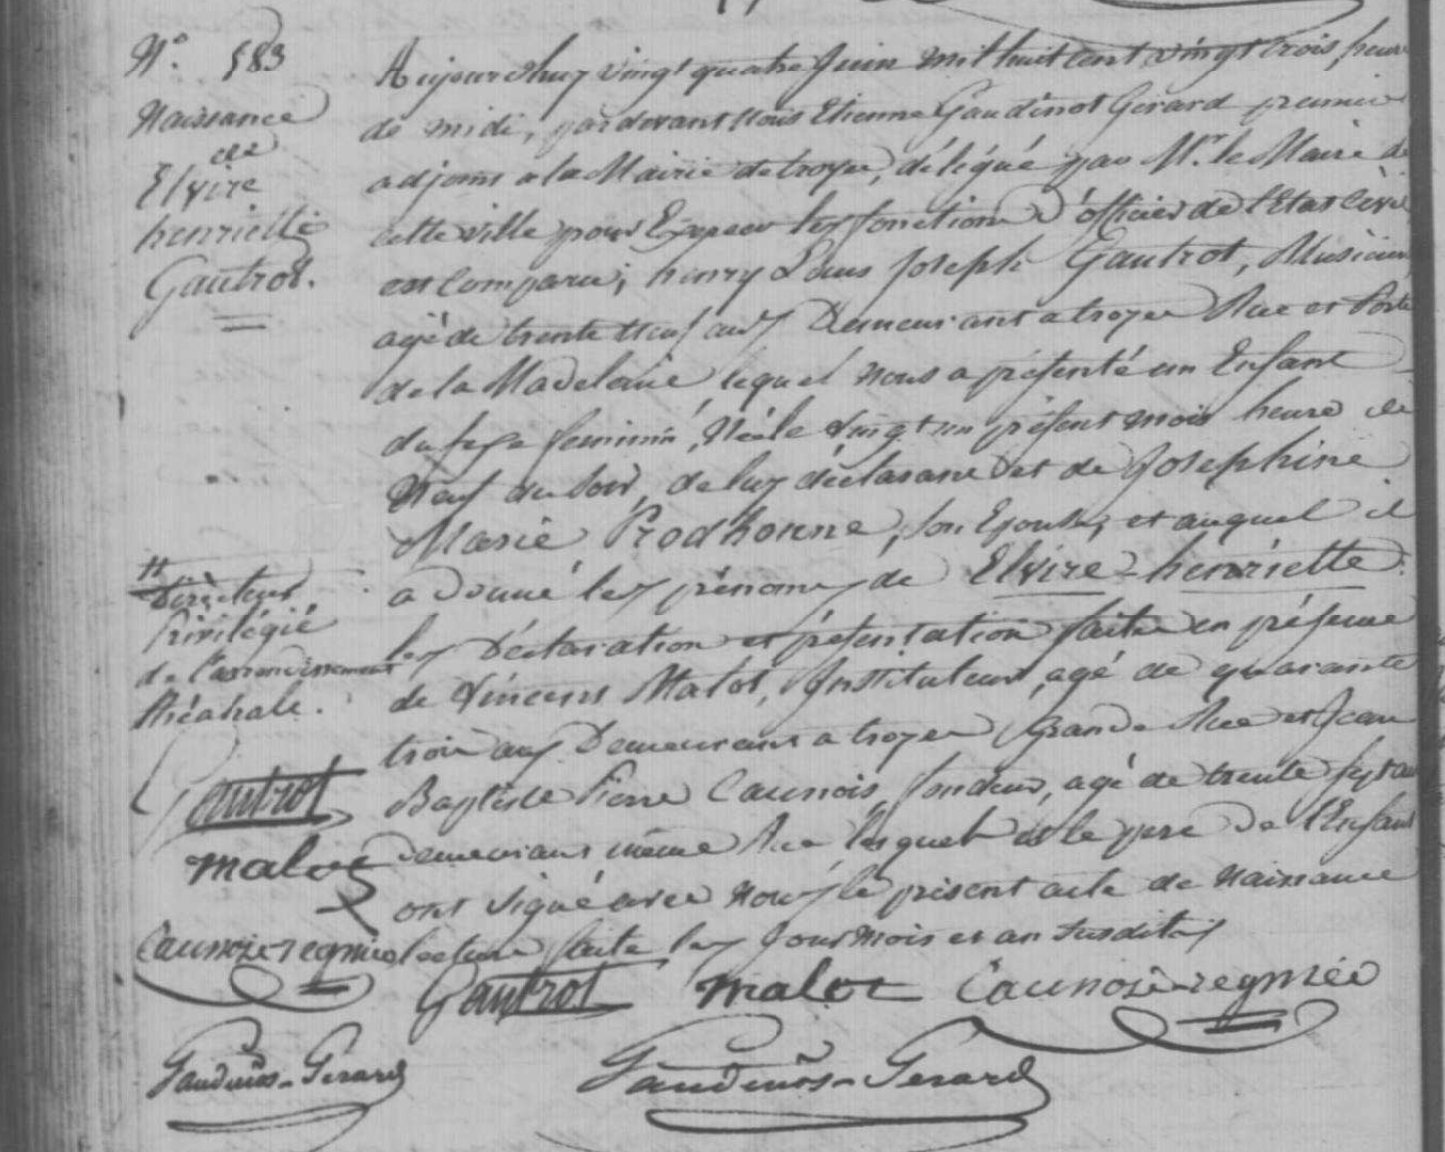 N.° 583
Naissance
de
Elvire
henriette
Gautrot.
Aujourdhuy vingt quatre Juin mil huit cent vingt trois, heure
de midi, pardevant Nous Etienne Gaudinot Gerard premier
adjoint a la Mairie de troyes, délégué par M.r le Maire de
cette ville pour Exercer les fonctions d'officier de l'Etat Civil
est Comparu, henry Louis Joseph Gautrot, Musicien
agé de trente Neuf ans Demeurant a troyes Rue et Porte
de la Madelaine, lequel Nous a présenté un Enfant
du sexe feminin, Née le vingt un présent mois heure de
Neuf du Soir, de luy déclarant et de Josephine
Marie Prodhomme, son Epouse, et auquel il
a Donné les prénoms de Elvire - henriette.
les Déclaration et présentation faites en présence
de Vincent Malot, Instituteur, agé de quarante
trois ans Demeurant a troyes Grande Rue et Jean
Baptiste Pierre Caunois, fondeur, agé de trente sept ans
demeurant même Rue lesquels et le pere de l'Enfant
ont signé avec Nous le présent acte de Naissance
lecture faite les Jour Mois et an susdits
Directeur
Privilégié
de l'arrondissement
Théatrale.
Gautrot
malot
Caunois-regnier
Gautrot malot Caunois-regnier
Gaudinot-Gerard Gaudinot-Gerard